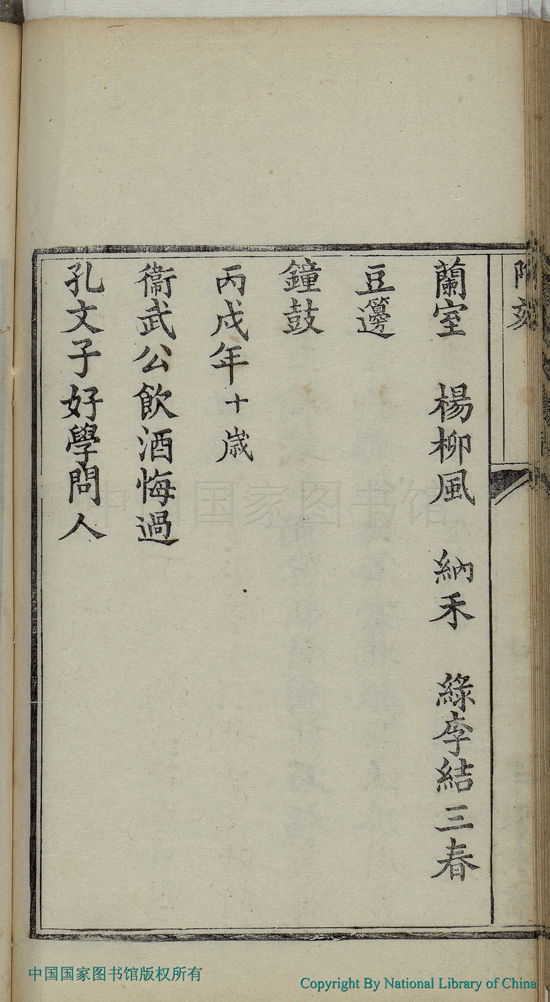 附刻
蘭室　楊柳風　納禾　綠李結三春
豆籩
鐘鼓
丙戌年十歲
衞武公飲酒悔過
孔文子好學問人
中国国家图书馆
中国国家图书馆版权所有
Copyright By National Library of China